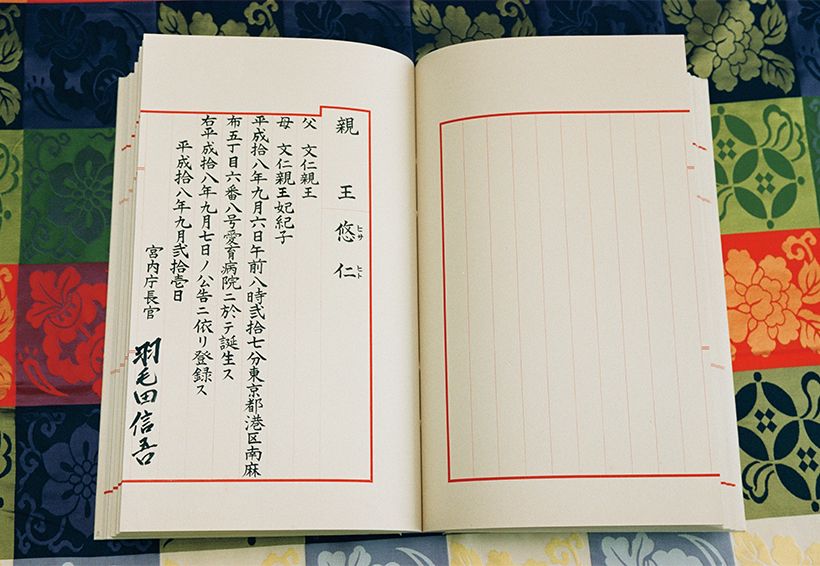 親王悠仁
ヒサヒト
父 文仁親王
母 文仁親王妃紀子
平成拾八年九月六日午前八時弐拾七分東京都港区南麻
布五丁目六番八号愛育病院ニ於テ誕生ス
右平成拾八年九月七日ノ公告ニ依リ登録ス
平成拾八年九月弐拾壱日
宮内庁長官
羽毛田信吾